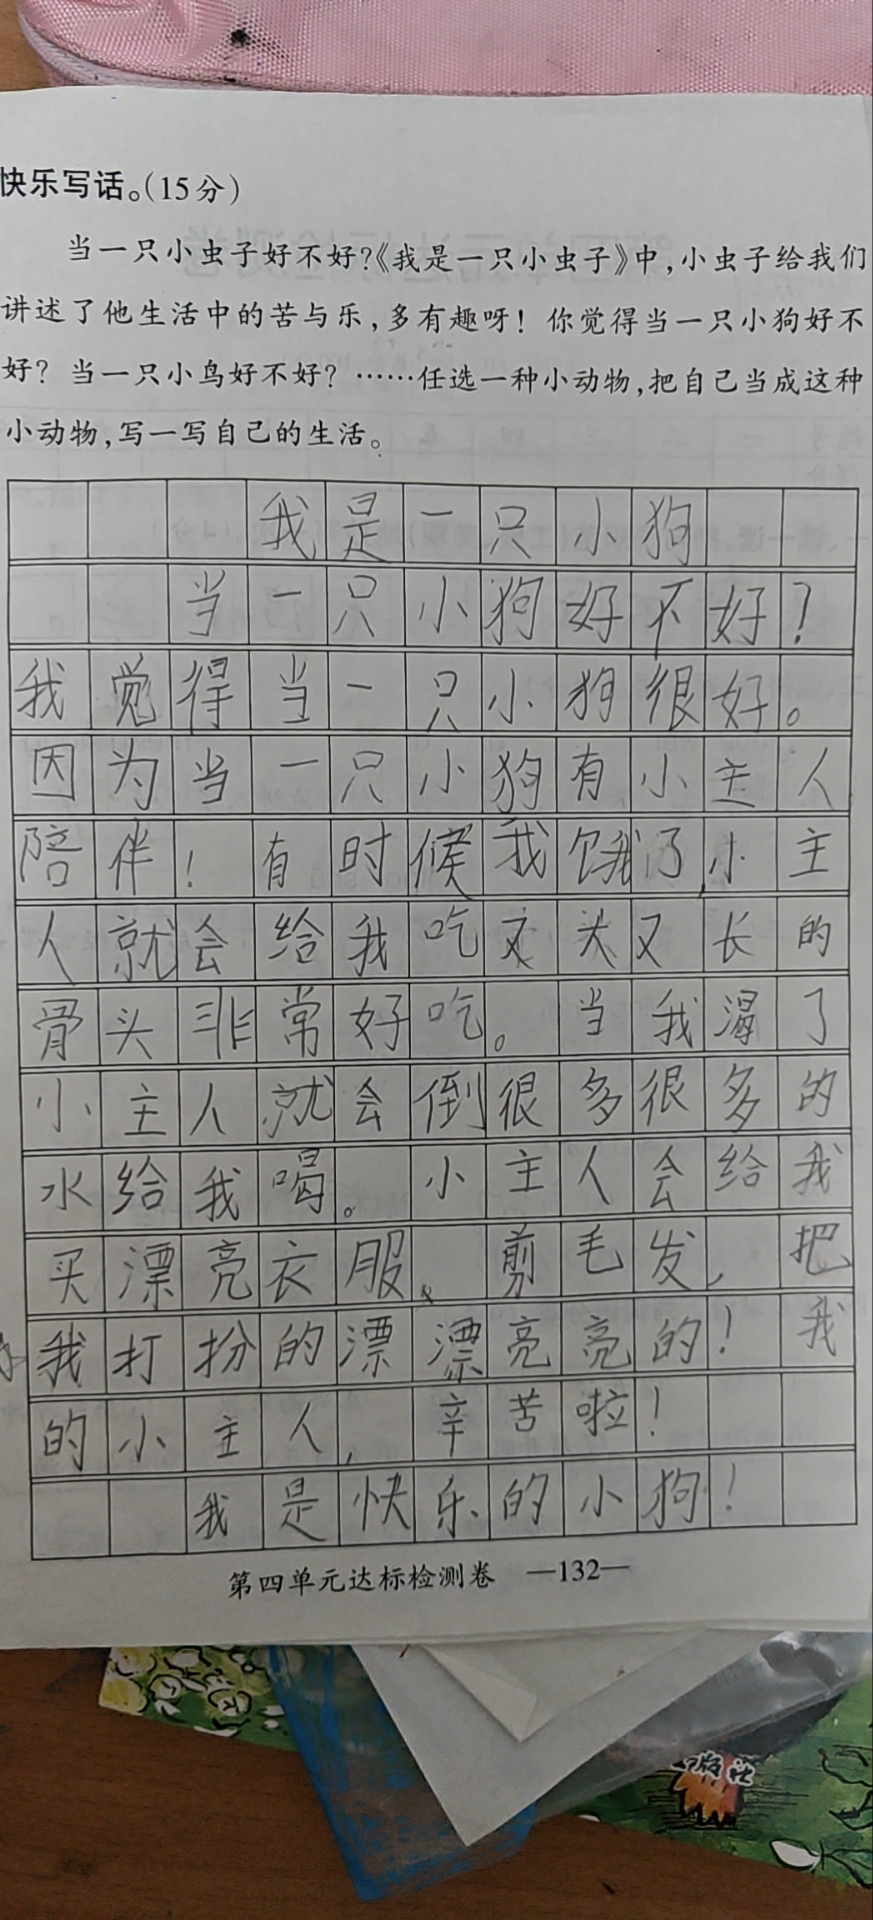 快乐写话。(15分)
当一只小虫子好不好?《我是一只小虫子》中,小虫子给我们
讲述了他生活中的苦与乐,多有趣呀!你觉得当一只小狗好不
好?当一只小鸟好不好?……任选一种小动物,把自己当成这种
小动物,写一写自己的生活。
我是一只小狗
当一只小狗好不好?
我觉得当一只小狗很好。
因为当一只小狗有小主人
陪伴!有时候我饿了,小主
人就会给我吃又大又长的
骨头非常好吃。当我渴了
小主人就会倒很多很多的
水给我喝。小主人会给我
买漂亮衣服、剪毛发,把
我打扮的漂漂亮亮的!我
的小主人,辛苦啦!
我是快乐的小狗!
第四单元达标检测卷 —132—